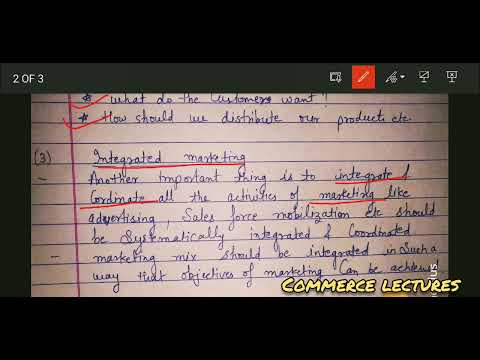 2 OF 3
* What do the Customers want?
* How should we distribute our products etc
(3) Integrated marketing
- Another important thing is to integrate &
Cordinate all the activities of marketing like
advertising, Sales force mobilization etc should
be Systematically integrated & Coordinated
- marketing mix should be integrated in Such a
way that objectives of marketing Can be achieved
COMMERCE LECTURES